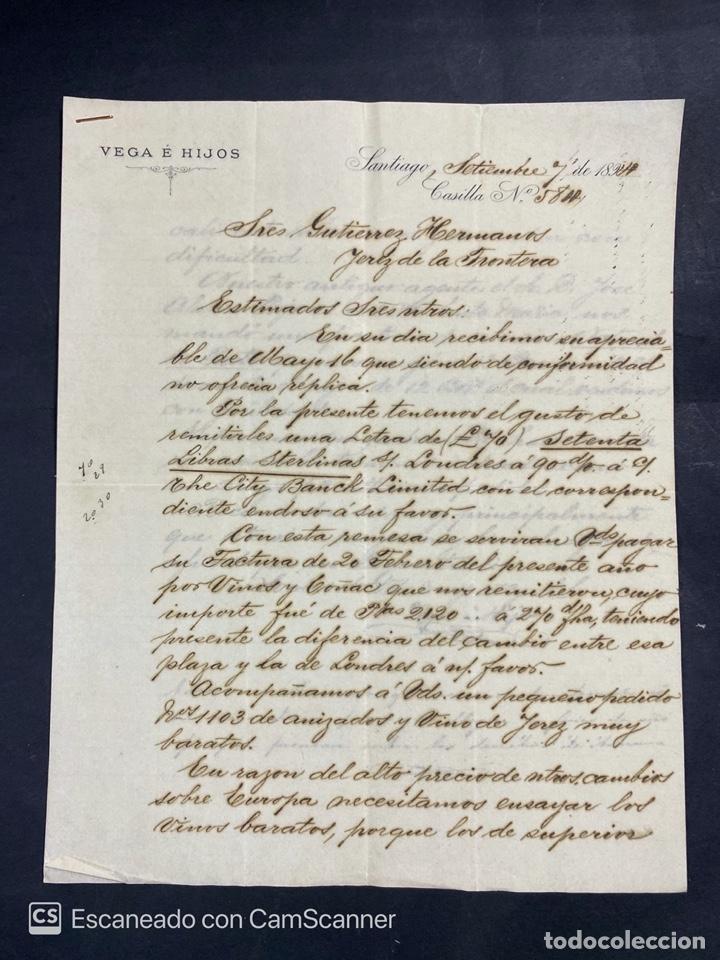 VEGA É HIJOS
Santiago, Setiembre 7 de 1894
Casilla N.o 584
Sres. Gutierrez Hermanos
Jerez de la Frontera
Estimados Sres ntros.
En su dia recibimos su aprecia-
ble de Mayo 16 que siendo de conformidad
no ofrecia réplica.
Por la presente tenemos el gusto de
remitirles una Letra de (£ 70) Setenta
Libras Sterlinas s/. Londres á 90 d/v. á c/.
The City Banck Limited con el correspon-
diente endoso á su favor.
7o 29
2o 30
Con esta remesa se serviran Vds pagar
su Factura de 20 Febrero del presente año
por Vinos y Coñac que nos remitieron, cuyo
importe fué de Ptas 2120.. á 270 d/fha, teniendo
presente la diferencia del cambio entre esa
plaza y la de Londres á n/. favor.
Acompañamos á Vds. un pequeño pedido
Nos 1103 de anizados y Vino de Jerez muy
baratos.
En razon del alto precio de ntros. cambios
sobre Europa necesitamos ensayar los
Vinos baratos, porque los de superior
CS Escaneado con CamScanner
todocoleccion